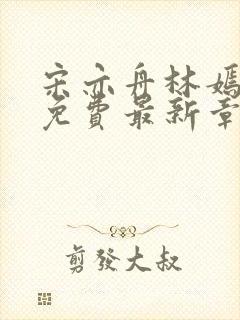 宋亦舟林嫣
免費最新章
剪發大叔